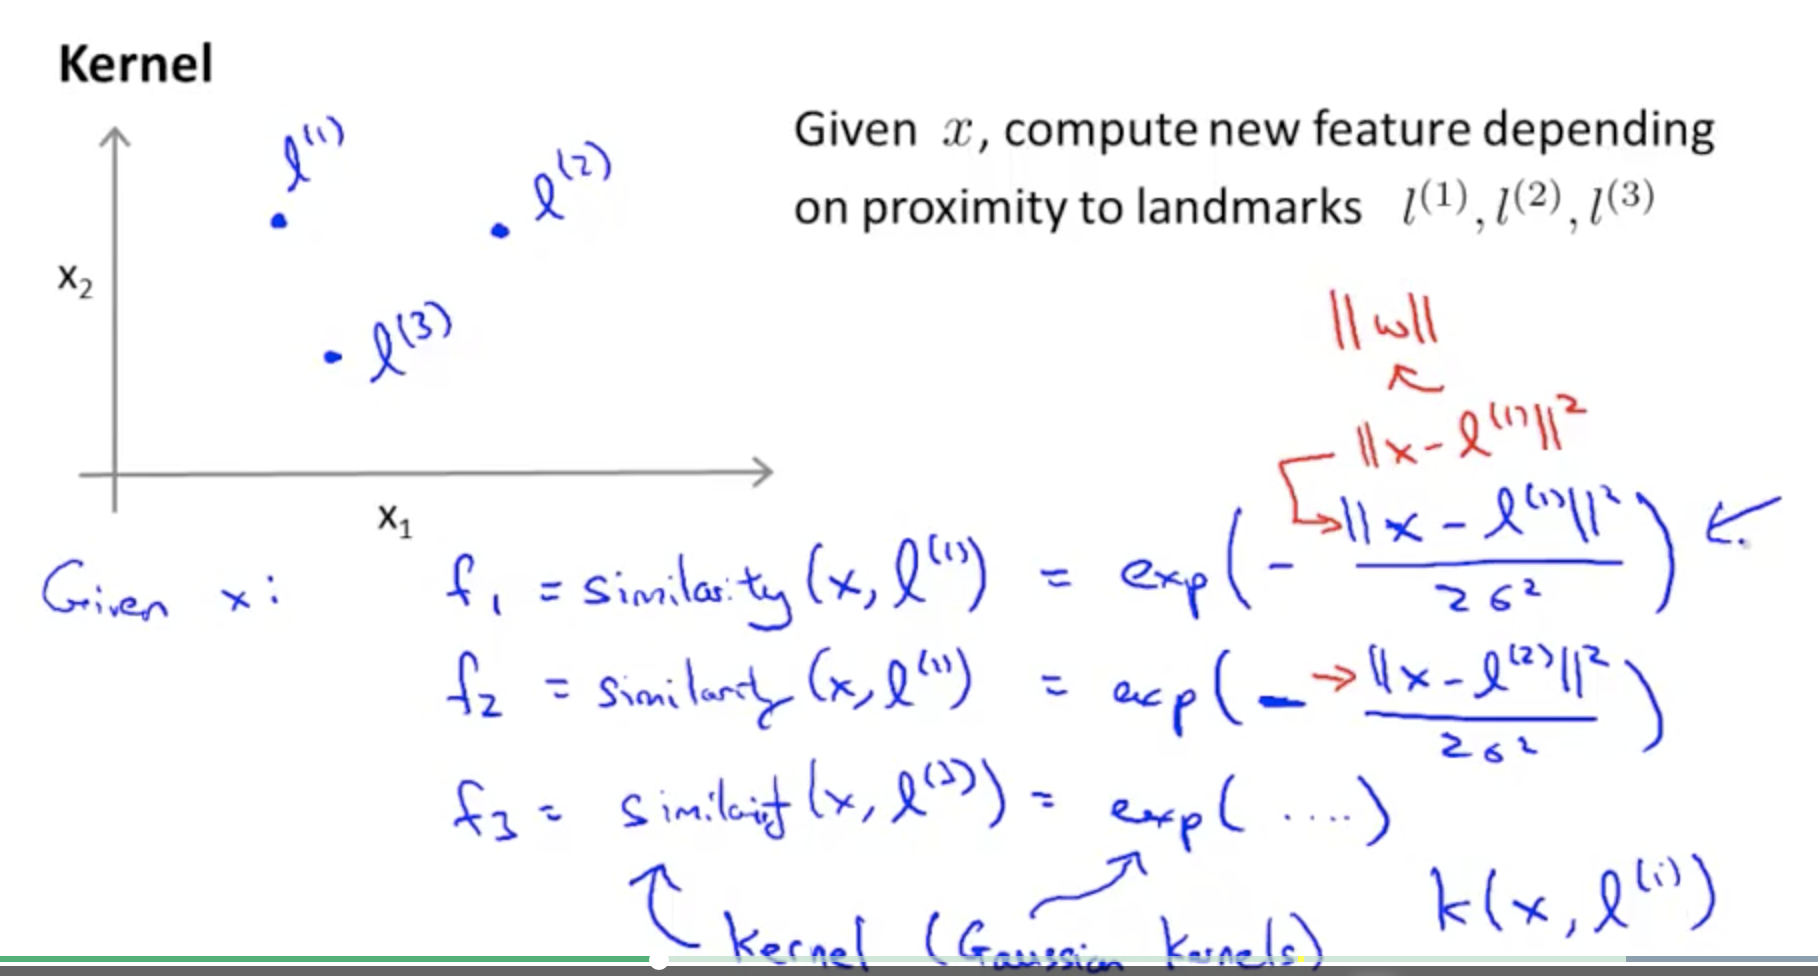 Kernel
l^(1)
l^(2)
x₂
l^(3)
x₁
Given x, compute new feature depending
on proximity to landmarks l^(1), l^(2), l^(3)
||w||
||x - l^(1)||²
Given x: f₁ = similarity(x, l^(1)) = exp(- ||x - l^(1)||² / 2σ²)
f₂ = similarity(x, l^(1)) = exp(- ||x - l^(2)||² / 2σ²)
f₃ = similarity(x, l^(3)) = exp(....)
kernel (Gaussian kernels) k(x, l^(i))